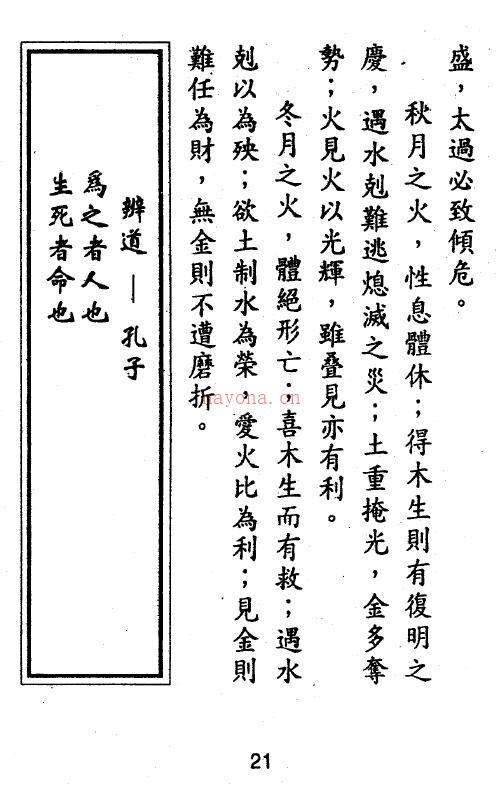 盛，太過必致傾危。
秋月之火，性息體休；得木生則有復明之
慶，遇水剋難逃熄滅之災；土重掩光，金多奪
勢；火見火以光輝，雖叠見亦有利。
冬月之火，體絕形亡；喜木生而有救；遇水
剋以為殃；欲土制水為榮，愛火比為利；見金則
難任為財，無金則不遭磨折。
辨道 — 孔子
為之者人也
生死者命也
nayona.cn
21